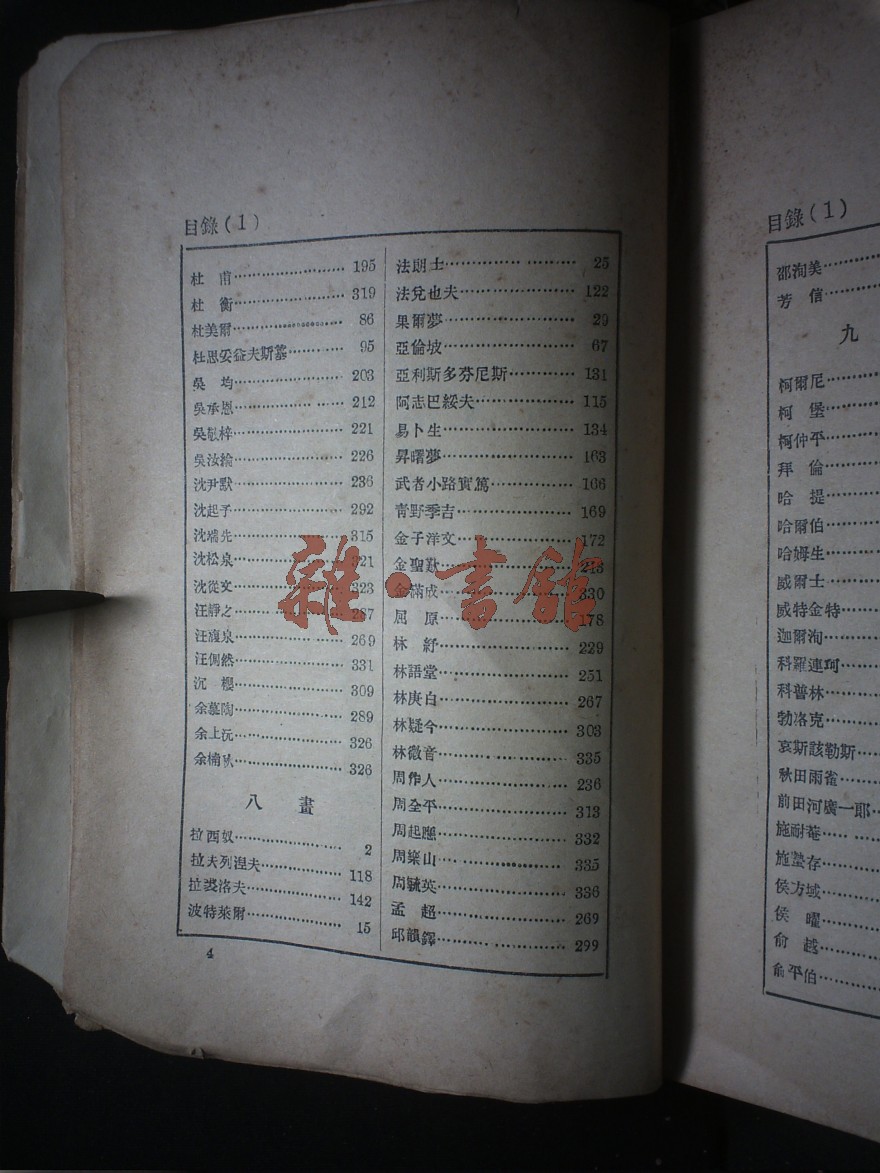 目錄(1)
杜 甫 195
杜 衡 319
杜美爾 86
杜思妥益夫斯基 95
吳 均 203
吳承恩 212
吳敬梓 221
吳汝綸 226
沈尹默 236
沈起予 292
沈端先 315
沈松泉 321
沈從文 323
汪靜之 287
汪馥泉 269
汪倜然 331
沉 櫻 309
余慕陶 289
余上沅 326
余楠秋 326
八 畫
拉西奴 2
拉夫列涅夫 118
拉婆洛夫 142
波特萊爾 15
4
法朗士 25
法兌也夫 122
果爾夢 29
亞倫坡 67
亞利斯多芬尼斯 131
阿志巴綏夫 115
易卜生 134
昇曙夢 163
武者小路實篤 166
青野季吉 169
金子洋文 172
金聖歎
金滿成 330
屈 原 178
林 紓 229
林語堂 251
林庚白 267
林疑今 303
林微音 335
周作人 236
周全平 313
周起應 332
周樂山 335
周毓英 336
孟 超 269
邱韻鐸 299
雜·書館
目錄(1)
邵洵美
芳 信
九
柯爾尼
柯 堡
柯仲平
拜 倫
哈 提
哈爾伯
哈姆生
威爾士
威特金特
迦爾洵
科羅連珂
科普林
勃洛克
哀斯該勒斯
秋田雨雀
前田河廣一郎
施耐菴
施蟄存
侯方域
侯 曜
俞 越
俞平伯